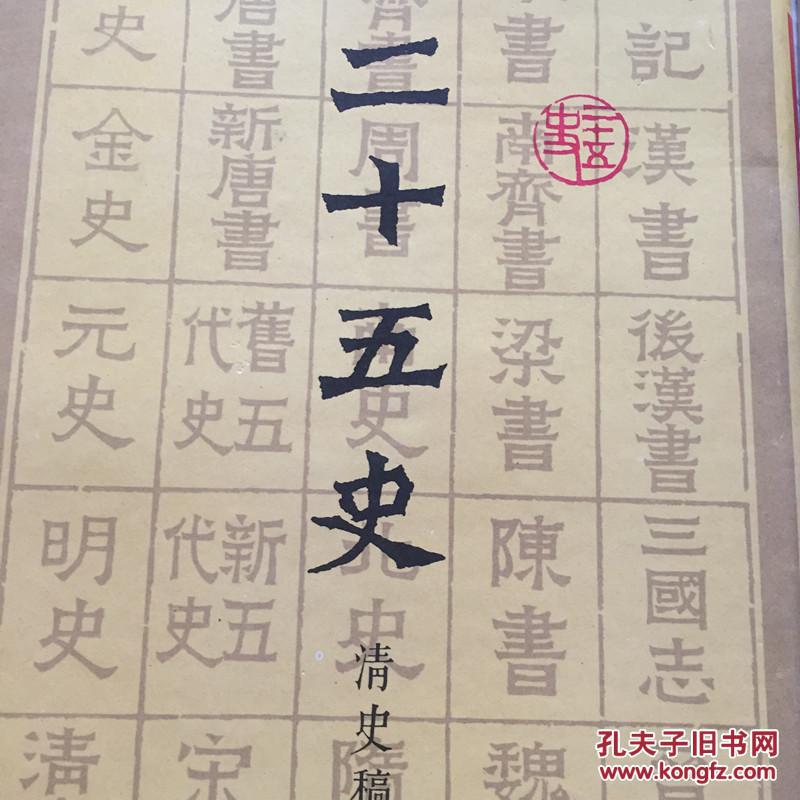 二十五史
清史稿
記
漢書
後漢書
三國志
書
南齊書
梁書
陳書
魏
齊書
周書
史
北史
隋
唐書
新唐書
舊五代史
新五代史
宋
史
金史
元史
明史
清
二十五史
孔夫子旧书网
www.kongfz.com